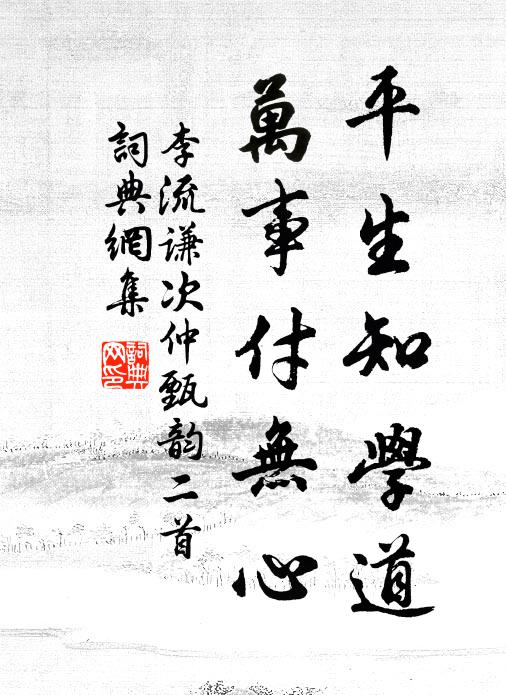 平生知學道
萬事付無心
李流谦次仲甄韵二首
詞典網集
詞典網印